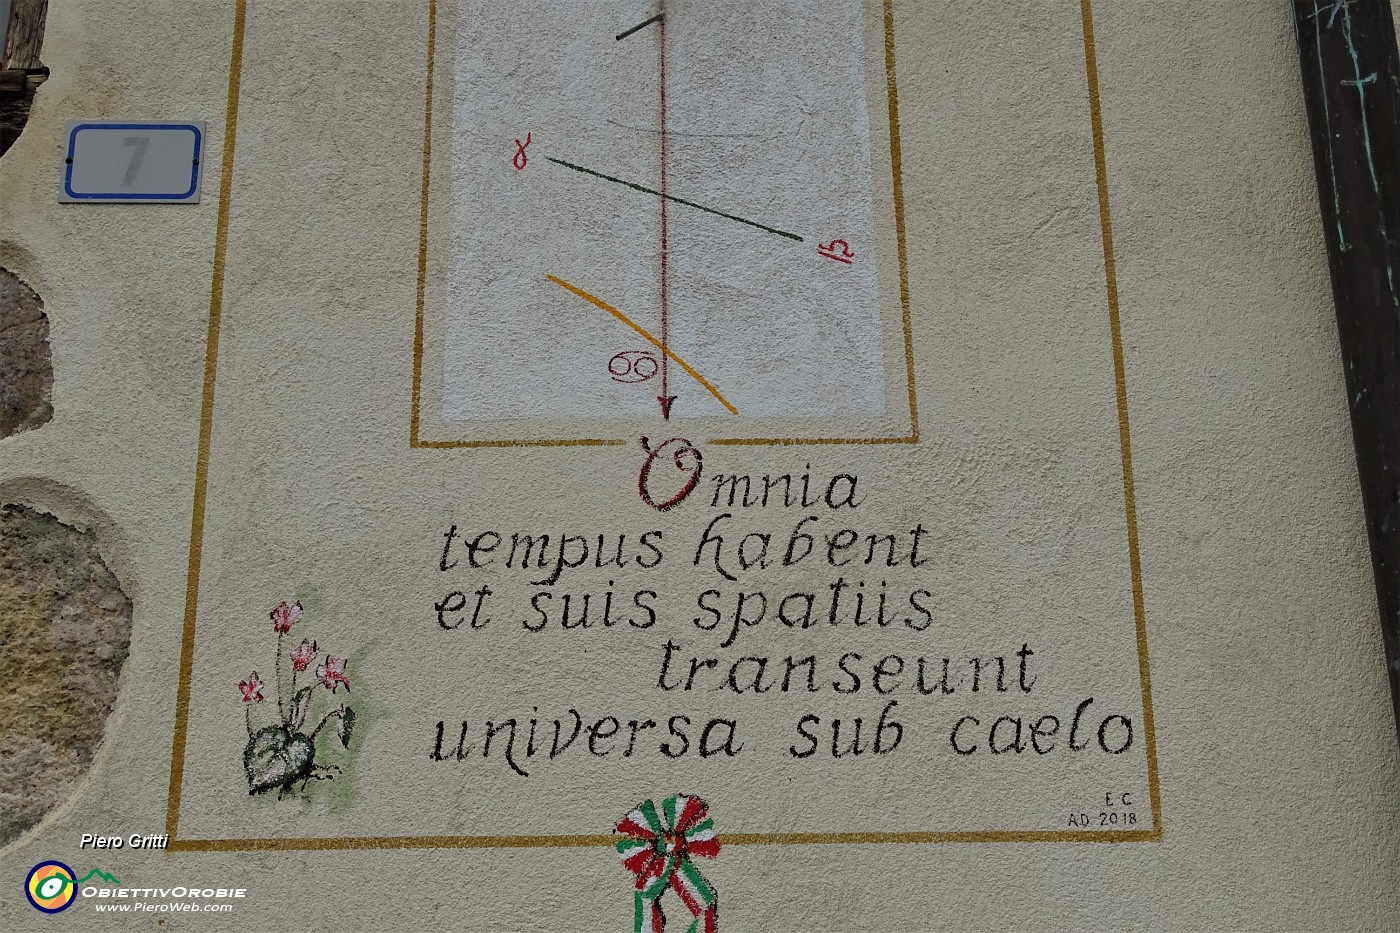 7
♈ ♎
♋
Omnia
tempus habent
et suis spatiis
transeunt
universa sub caelo
E C
A.D. 2018
Piero Gritti
ObiettivOrobie
www.PieroWeb.com